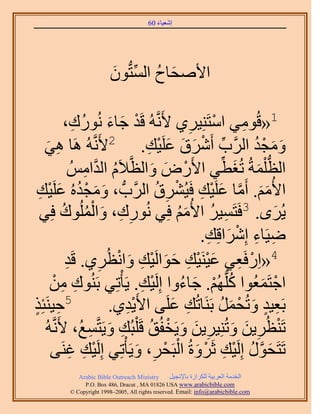 إشعياء 60
الأصحَاحُ السِّتُّونَ
1«قُومِي اسْتَنِيرِي لأَنَّهُ قَدْ جَاءَ نُورُكِ،
وَمَجْدُ الرَّبِّ أَشْرَقَ عَلَيْكِ. 2لأَنَّهُ هَا هِيَ
الظُّلْمَةُ تُغَطِّي الأَرْضَ وَالظَّلاَمُ الدَّامِسُ
الأُمَمَ. أَمَّا عَلَيْكِ فَيُشْرِقُ الرَّبُّ، وَمَجْدُهُ عَلَيْكِ
يُرَى. 3فَتَسِيرُ الأُمَمُ فِي نُورِكِ، وَالْمُلُوكُ فِي
ضِيَاءِ إِشْرَاقِكِ.
4«اِرْفَعِي عَيْنَيْكِ حَوَالَيْكِ وَانْظُرِي. قَدِ
اجْتَمَعُوا كُلُّهُمْ. جَاءُوا إِلَيْكِ. يَأْتِي بَنُوكِ مِنْ
بَعِيدٍ وَتُحْمَلُ بَنَاتُكِ عَلَى الأَيْدِي. 5حِينَئِذٍ
تَنْظُرِينَ وَتُنِيرِينَ وَيَخْفُقُ قَلْبُكِ وَيَتَّسِعُ، لأَنَّهُ
تَتَحَوَّلُ إِلَيْكِ ثَرْوَةُ الْبَحْرِ، وَيَأْتِي إِلَيْكِ غِنَى
Arabic Bible Outreach Ministry الخدمة العربية للكرازة بالإنجيل
P.O. Box 486, Dracut , MA 01826 USA www.arabicbible.com
© Copyright 1998–2005, All rights reserved. Email: info@arabicbible.com